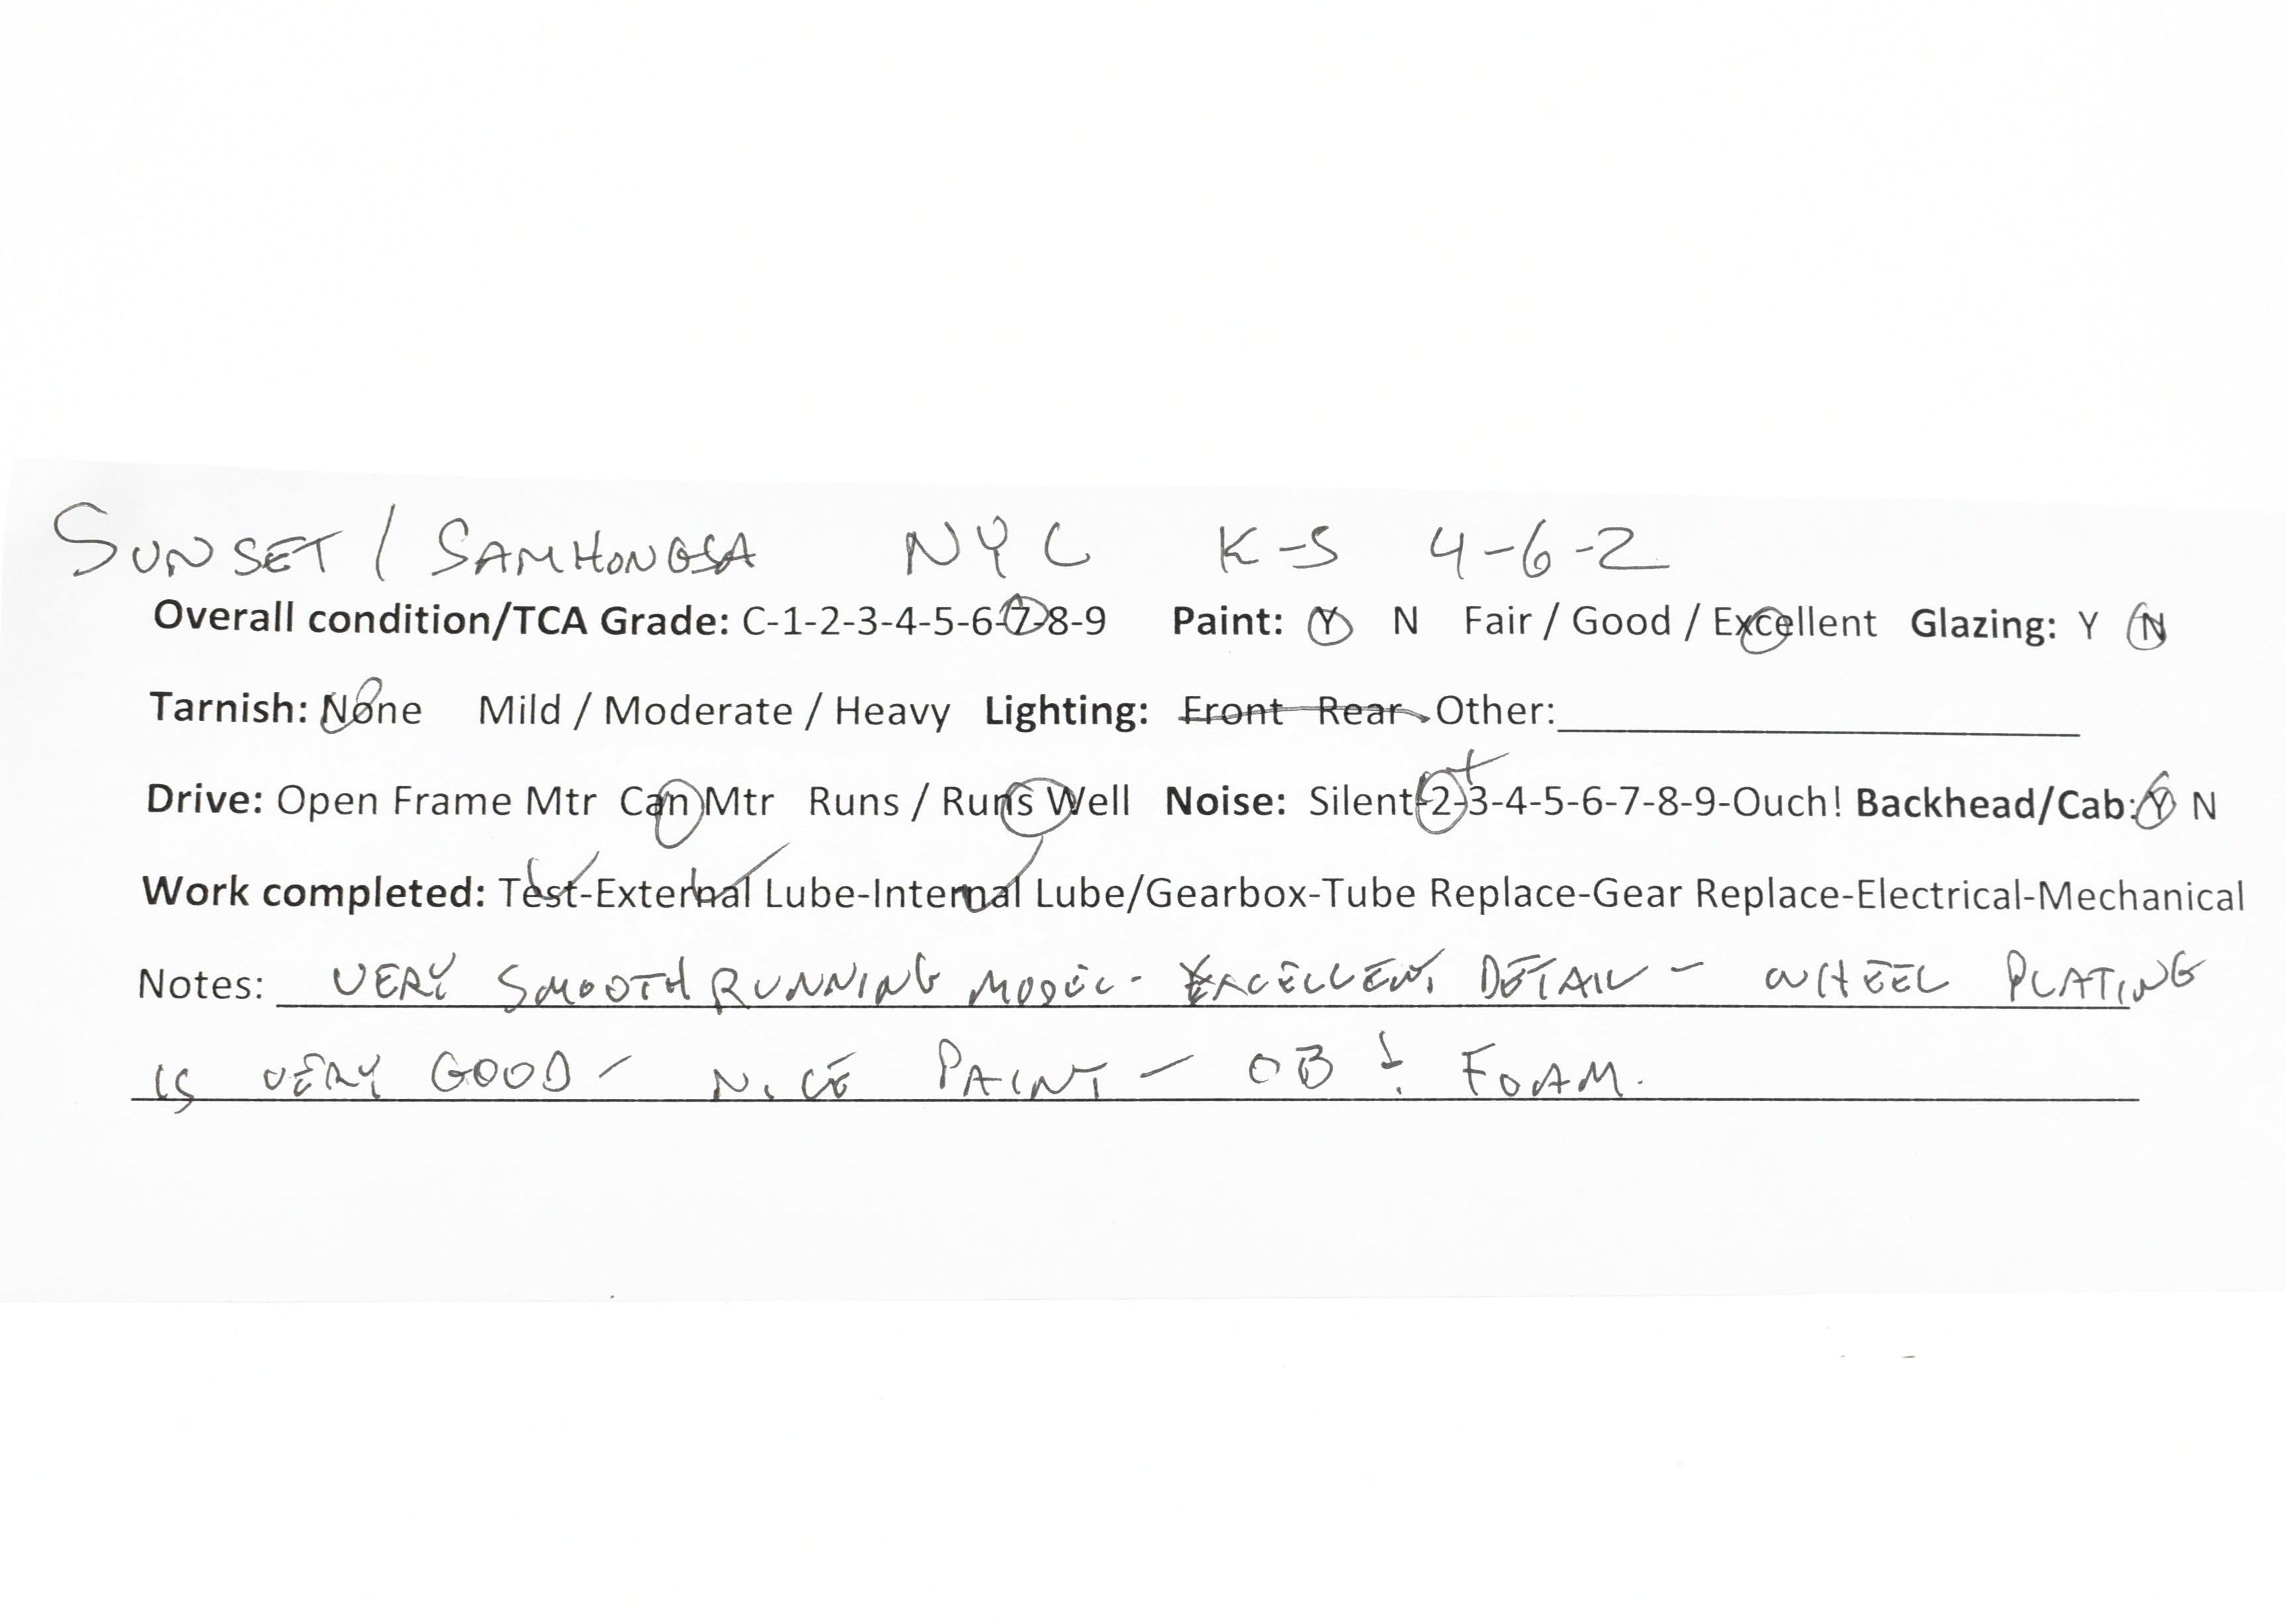 SUNSET / SAMHONGSA NYC K-5 4-6-2
Overall condition/TCA Grade: C-1-2-3-4-5-6-7-8-9 Paint: Y N Fair / Good / Excellent Glazing: Y N
Tarnish: None Mild / Moderate / Heavy Lighting: Front Rear Other:
Drive: Open Frame Mtr Can Mtr Runs / Runs Well Noise: Silent-2-3-4-5-6-7-8-9-Ouch! Backhead/Cab: Y N
Work completed: Test-External Lube-Internal Lube/Gearbox-Tube Replace-Gear Replace-Electrical-Mechanical
Notes: VERY SMOOTH RUNNING MODEL - EXCELLENT DETAIL - WHEEL PLATING
IS VERY GOOD - NICE PAINT - OB & FOAM.